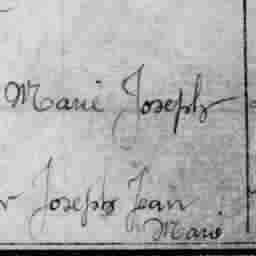 Marie Joseph
Joseph Jean
Marie